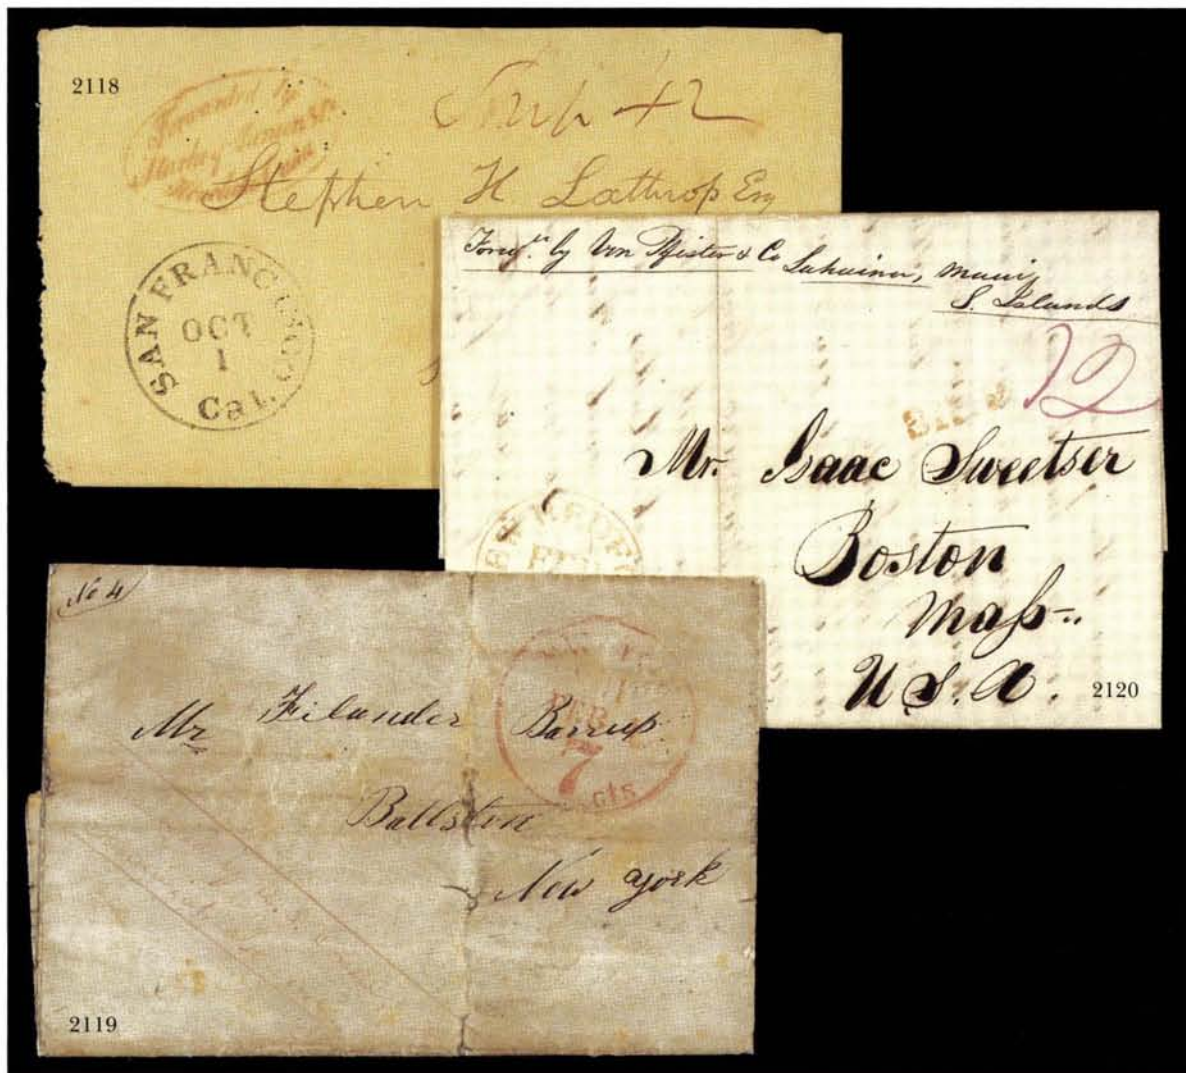 2118
Forwarded by
Starkey, Janion & Co.
Ship 42
Stephen H Lathrop Esq
SAN FRANCISCO
OCT
1
Cal.
Forwd. by Von Pfister & Co Lahaina, Maui,
S. Islands
12
SHIP
Mr. Isaac Sweetser
Boston
Mass.
U. S. A.
2120
NEW BEDFORD
FEB
No 4
FEB
7
cts
Mr Filander Barrup.
Ballston
New York
2119